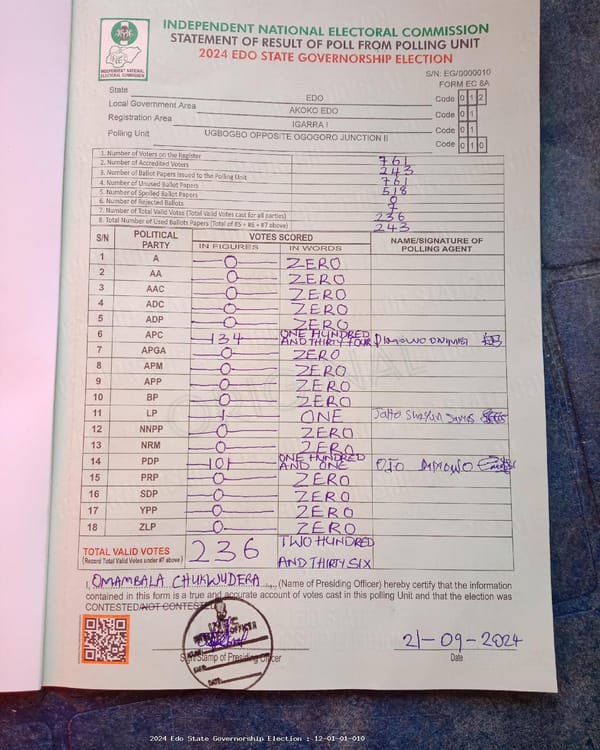 INDEPENDENT NATIONAL ELECTORAL COMMISSION
STATEMENT OF RESULT OF POLL FROM POLLING UNIT
2024 EDO STATE GOVERNORSHIP ELECTION
INDEPENDENT NATIONAL ELECTORAL COMMISSION
S/N: EG/0000010
FORM EC 8A
State EDO Code 0 1 2
Local Government Area AKOKO EDO Code 0 1
Registration Area IGARRA I Code 0 1
Polling Unit UGBOGBO OPPOSITE OGOGORO JUNCTION II Code 0 1 0
1. Number of Voters on the Register 761
2. Number of Accredited Voters 243
3. Number of Ballot Papers Issued to the Polling Unit 761
4. Number of Unused Ballot Papers 518
5. Number of Spoiled Ballot Papers 0
6. Number of Rejected Ballots 7
7. Number of Total Valid Votes (Total Valid Votes cast for all parties) 236
8. Total Number of Used Ballots Papers (Total of #5 + #6 + #7 above) 243
S/N POLITICAL PARTY VOTES SCORED NAME/SIGNATURE OF POLLING AGENT
IN FIGURES IN WORDS
1 A 0 ZERO
2 AA 0 ZERO
3 AAC 0 ZERO
4 ADC 0 ZERO
5 ADP 0 ZERO
6 APC 134 ONE HUNDRED AND THIRTY FOUR
7 APGA 0 ZERO
8 APM 0 ZERO
9 APP 0 ZERO
10 BP 0 ZERO
11 LP 1 ONE
12 NNPP 0 ZERO
13 NRM 0 ZERO
14 PDP 101 ONE HUNDRED AND ONE OJO
15 PRP 0 ZERO
16 SDP 0 ZERO
17 YPP 0 ZERO
18 ZLP 0 ZERO
TOTAL VALID VOTES 236 TWO HUNDRED
(Record Total Valid Votes under #7 above) AND THIRTY SIX
I, OMAMBALA CHUKWUDERA (Name of Presiding Officer) hereby certify that the information
contained in this form is a true and accurate account of votes cast in this polling Unit and that the election was
CONTESTED/NOT CONTESTED
21-09-2024
Sign/Stamp of Presiding Officer Date
2024 Edo State Governorship Election : 12-01-01-010